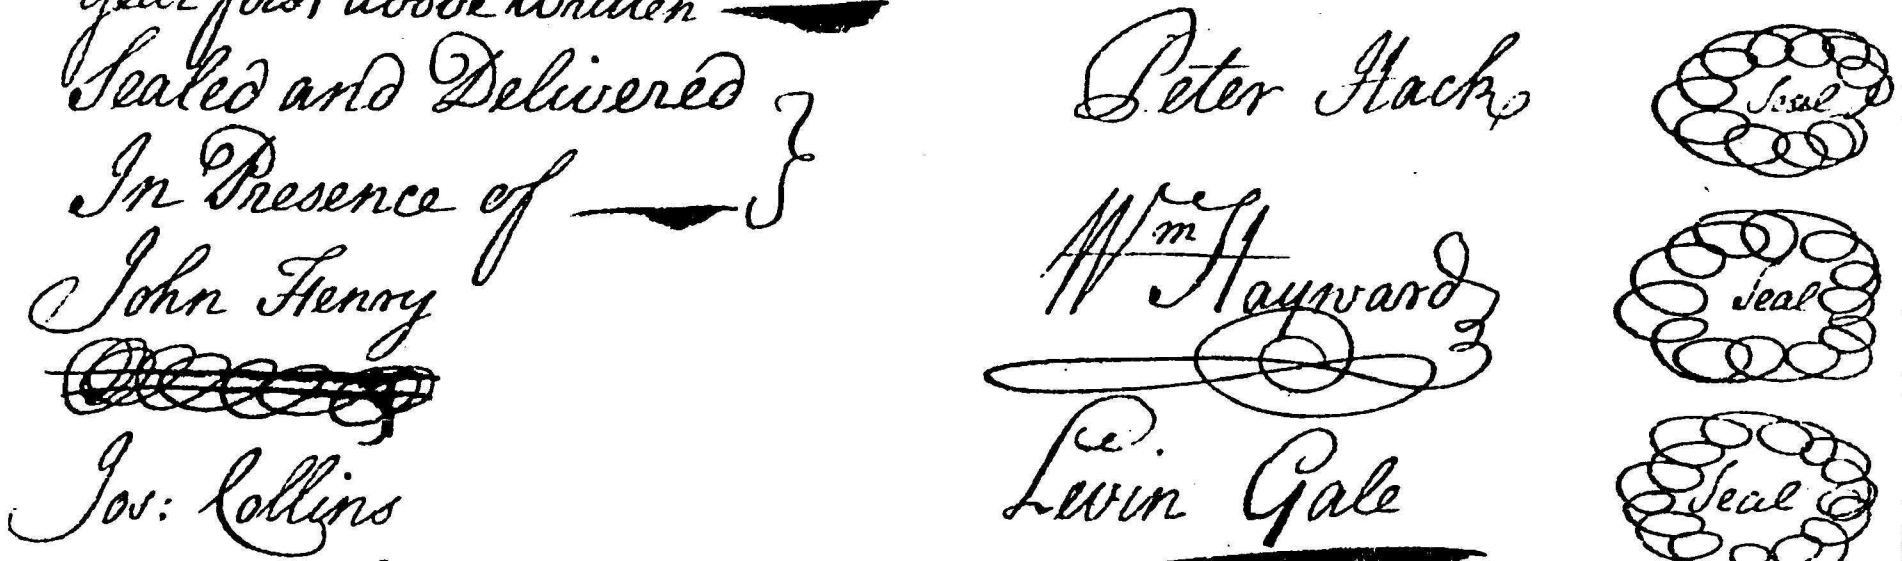 year first above written
Sealed and Delivered
In Presence of
John Henry
Jos: Collins
Peter Hack Seal
Wm Hayward Seal
Levin Gale Seal